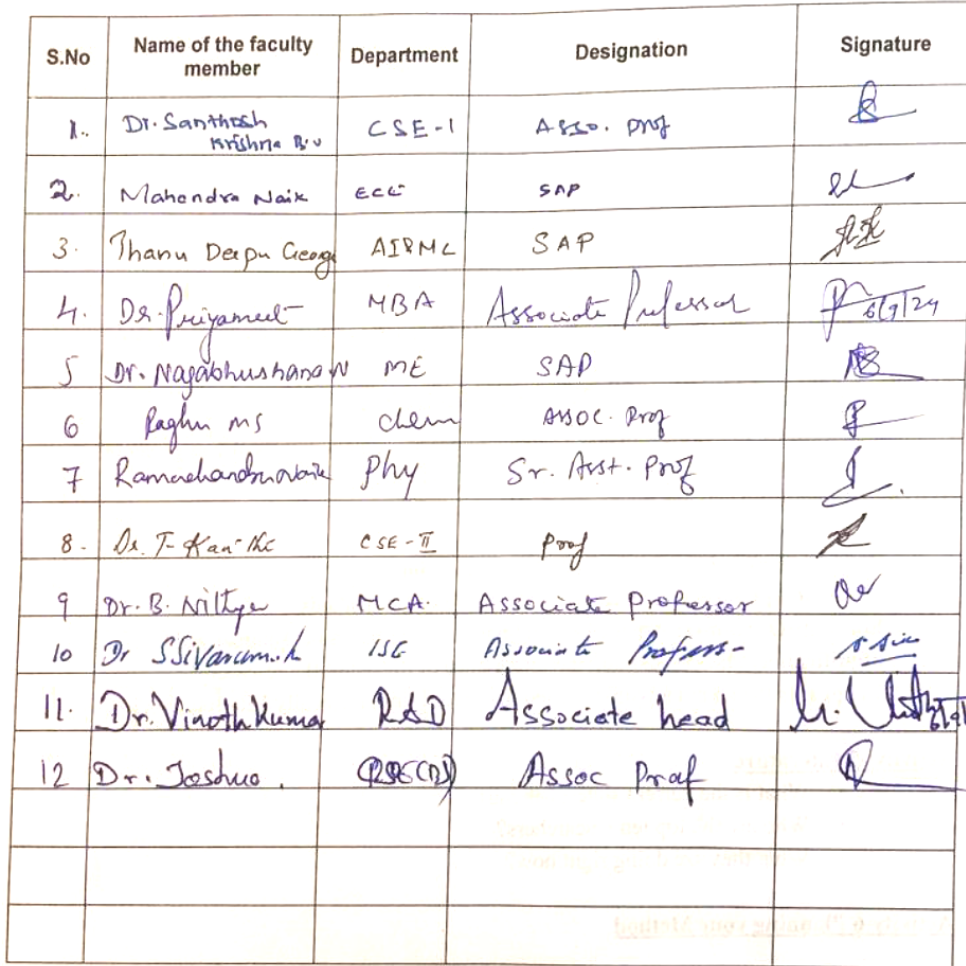 S.No Name of the faculty member Department Designation Signature
1. Dr. Santhosh Krishna B.V CSE-1 Asso. Prof
2. Mahendra Naik ECE SAP
3. Thanu Deepu George AI&ML SAP
4. Dr. Priyameet MBA Associate Professor 6/9/24
5 Dr. Nagabhushana N ME SAP
6 Raghu MS chem Assoc. Prof
7 Ramachandra Naik Phy Sr. Asst. Prof
8. Dr. T. CSE-II Prof
9 Dr. B. Nithya MCA. Associate Professor
10 Dr ISE Associate
11. Dr. Vinoth Kumar R&D Associate head
12 Dr. Joshua. Assoc Prof